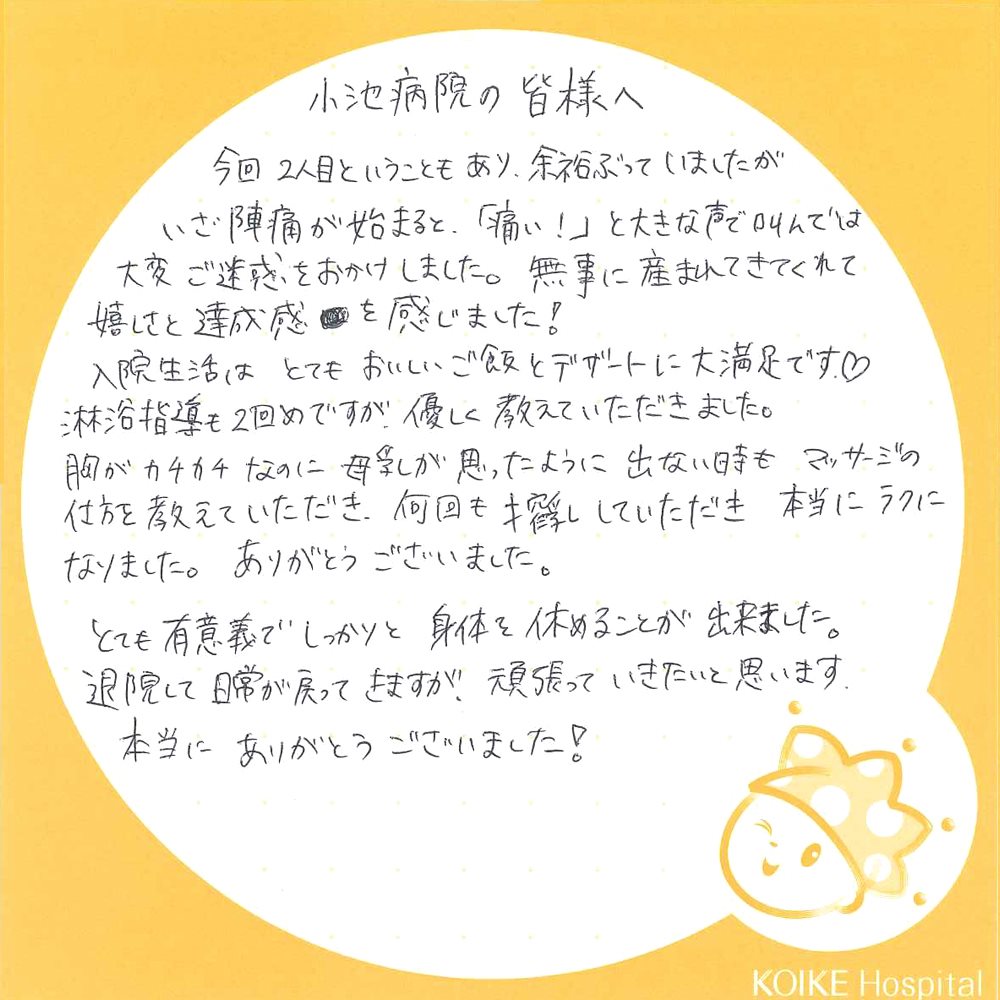 小池病院の皆様へ
今回2人目ということもあり、余裕ぶっていましたが
いざ陣痛が始まると、「痛い！」と大きな声で叫んでは
大変ご迷惑をおかけしました。無事に産まれてきてくれて
嬉しさと達成感を感じました！
入院生活はとてもおいしいご飯とデザートに大満足です♡
沐浴指導も2回めですが、優しく教えていただきました。
胸がカチカチなのに母乳が思ったように出ない時もマッサージの
仕方を教えていただき、何回も搾乳していただき本当にラクに
なりました。ありがとうございました。
とても有意義でしっかりと身体を休めることが出来ました。
退院して日常が戻ってきますが、頑張っていきたいと思います。
本当にありがとうございました！
KOIKE Hospital